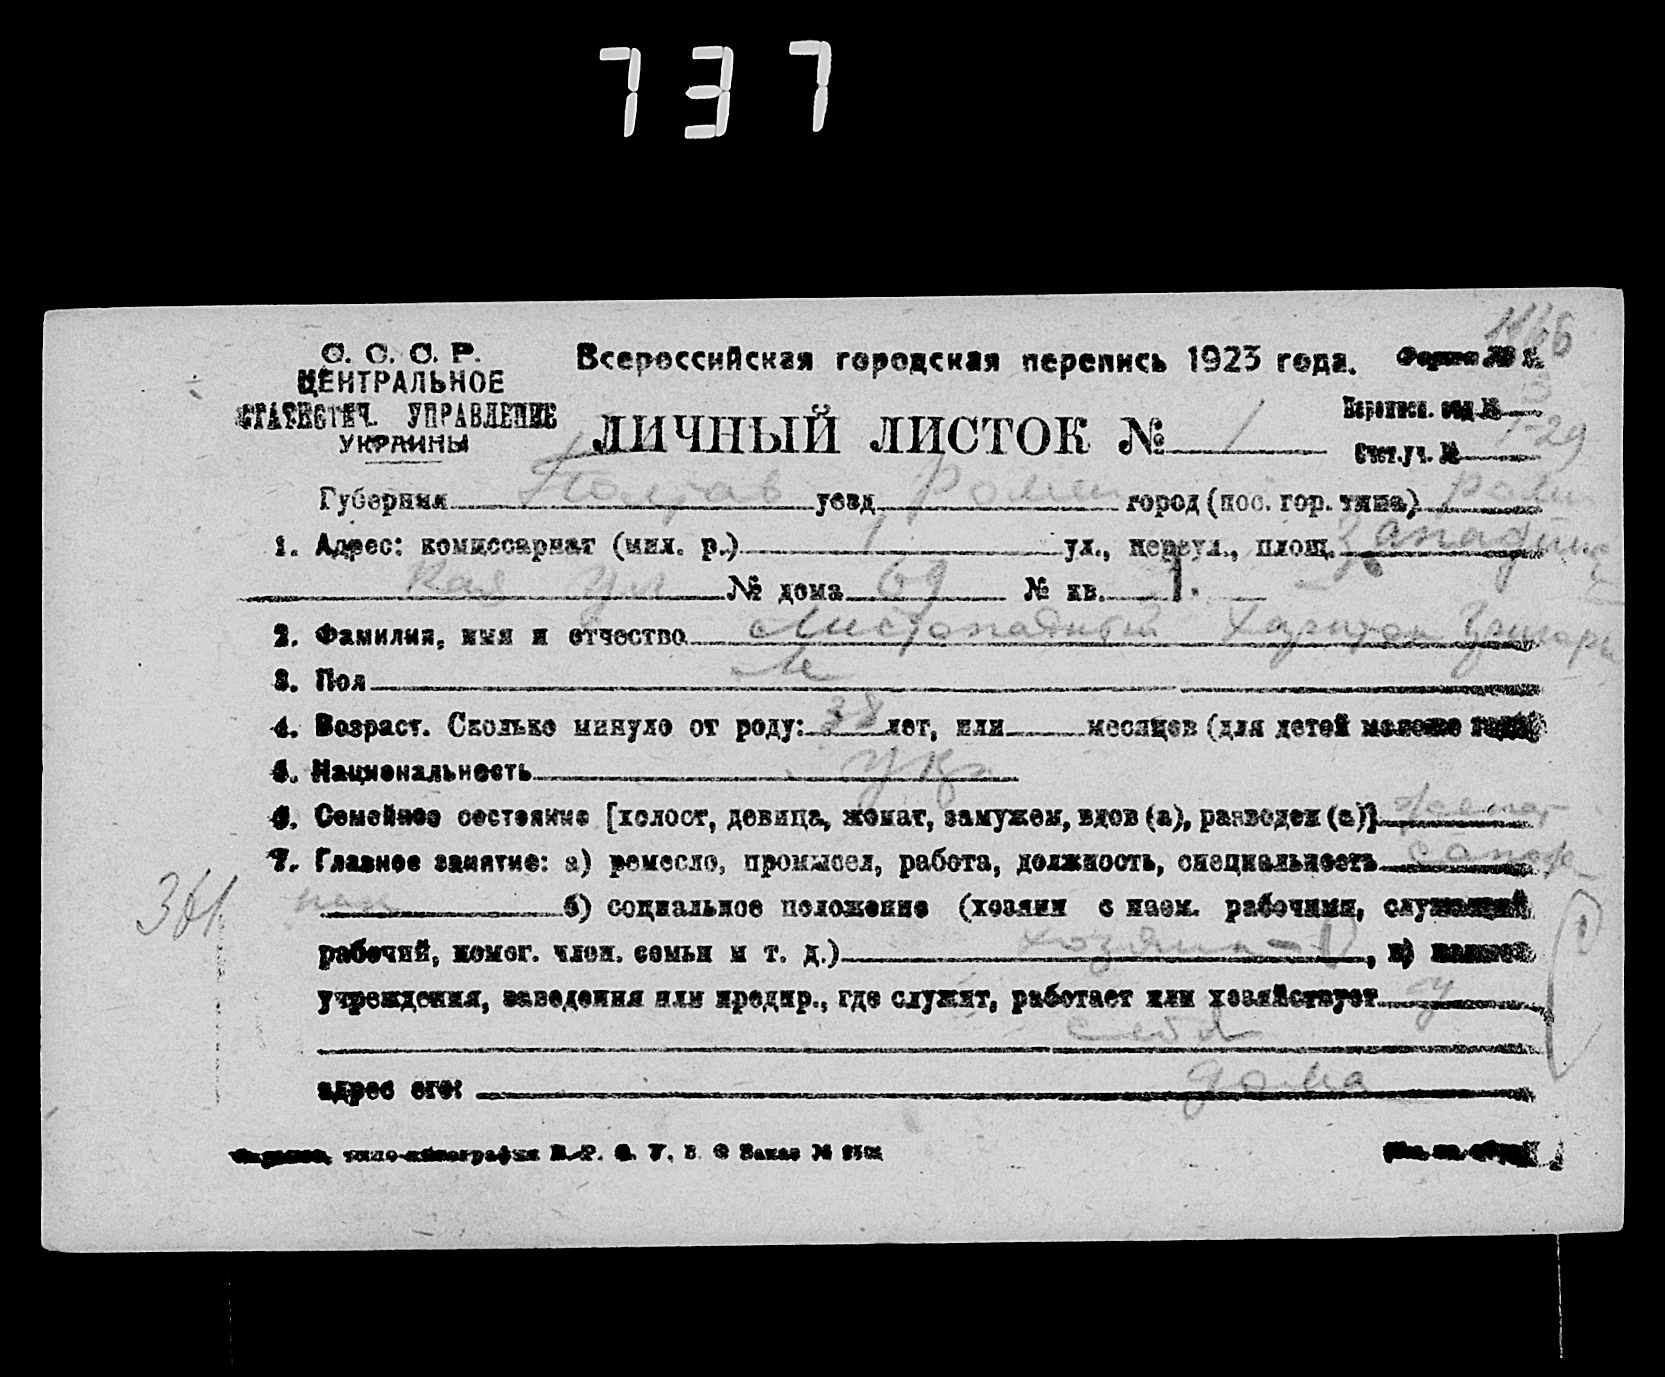 737
1466
С. С. С. Р.
ЦЕНТРАЛЬНОЕ
СТАТИСТИЧ. УПРАВЛЕНИЕ
УКРАИНЫ
Всероссийская городская перепись 1923 года. Форма №
ЛИЧНЫЙ ЛИСТОК № 1
Переписн. отд. № 3
Счет. уч. № 1-29
Губерния Полтав уезд Ромен город (пос. гор. типа) Ромн
1. Адрес: комиссариат (мил. р.) 1 ул., переул., площ.
кая ул № дома 69 № кв. 1.
2. Фамилия, имя и отчество Листопадный Харитон Григори
3. Пол М
4. Возраст. Сколько минуло от роду: 38 лет, или месяцев (для детей моложе года)
5. Национальность укр
6. Семейное состояние [холост, девица, женат, замужем, вдов (а), разведен (а)] женат
7. Главное занятие: а) ремесло, промысел, работа, должность, специальность сапож
ник б) социальное положение (хозяин с наем. рабочими, служащий
361
рабочий, помог. член. семьи и т. д.) хозяин - , в)
учреждения, заведения или предпр., где служит, работает или хозяйствует у
себя
адрес его: дома
Заказ №